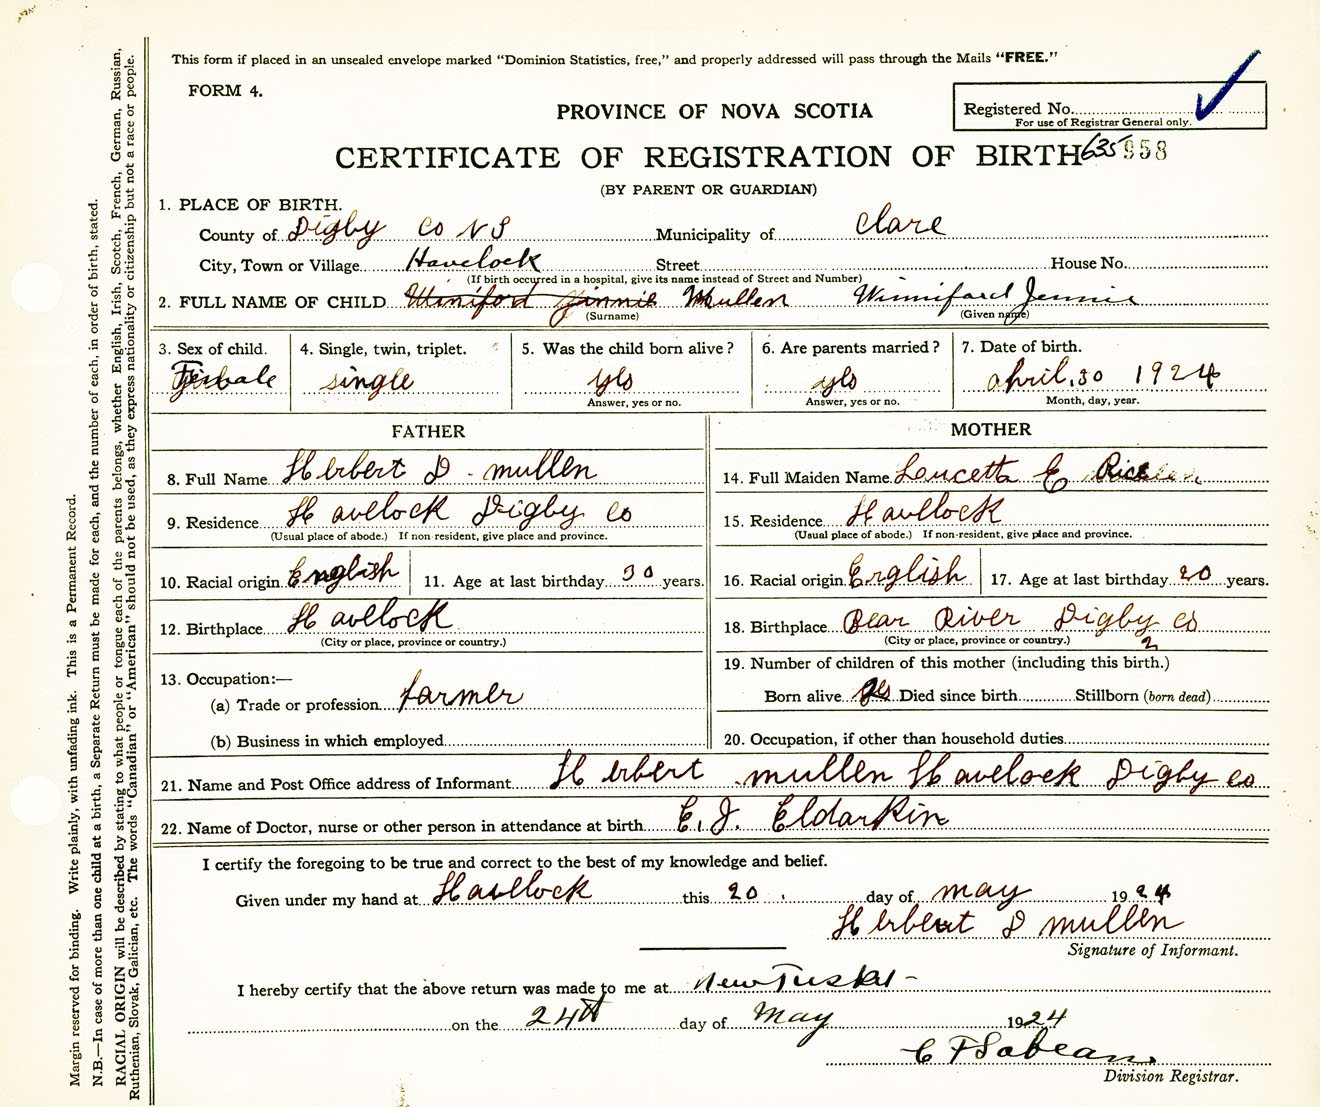 This form if placed in an unsealed envelope marked "Dominion Statistics, free," and properly addressed will pass through the Mails "FREE."
FORM 4.
PROVINCE OF NOVA SCOTIA
Registered No.
For use of Registrar General only.
CERTIFICATE OF REGISTRATION OF BIRTH 635958
(BY PARENT OR GUARDIAN)
1. PLACE OF BIRTH.
County of Digby Co N S Municipality of Clare
City, Town or Village Havelock Street House No.
(If birth occurred in a hospital, give its name instead of Street and Number)
2. FULL NAME OF CHILD Winiford Jinnie Mullen Winniford Jennie
(Surname) (Given name)
3. Sex of child. 4. Single, twin, triplet. 5. Was the child born alive? 6. Are parents married? 7. Date of birth.
Female single yes yes april, 30 1924
Answer, yes or no. Answer, yes or no. Month, day, year.
FATHER MOTHER
8. Full Name Herbert D. mullen 14. Full Maiden Name Loucetta E
9. Residence Havllock Digby Co 15. Residence Havllock
(Usual place of abode.) If non-resident, give place and province. (Usual place of abode.) If non-resident, give place and province.
10. Racial origin English 11. Age at last birthday 30 years. 16. Racial origin English 17. Age at last birthday 20 years.
12. Birthplace Havllock 18. Birthplace Bear River Digby Co
(City or place, province or country.) (City or place, province or country.)
13. Occupation:— 19. Number of children of this mother (including this birth.) 2
(a) Trade or profession farmer Born alive yes Died since birth Stillborn (born dead)
(b) Business in which employed 20. Occupation, if other than household duties
21. Name and Post Office address of Informant Herbert mullen Havelock Digby co
22. Name of Doctor, nurse or other person in attendance at birth E. J. Eldarkin
I certify the foregoing to be true and correct to the best of my knowledge and belief.
Given under my hand at Havllock this 20 day of may 1924
Herbert D mullen
Signature of Informant.
I hereby certify that the above return was made to me at New Tusket
on the 24th day of May 1924
C F Sabean
Division Registrar.
Margin reserved for binding. Write plainly, with unfading ink. This is a Permanent Record.
N.B.—In case of more than one child at a birth, a Separate Return must be made for each, and the number of each, in order of birth, stated.
RACIAL ORIGIN will be described by stating to what people or tongue each of the parents belongs, whether English, Irish, Scotch, French, German, Russian,
Ruthenian, Slovak, Galician, etc. The words "Canadian" or "American" should not be used, as they express nationality or citizenship but not a race or people.